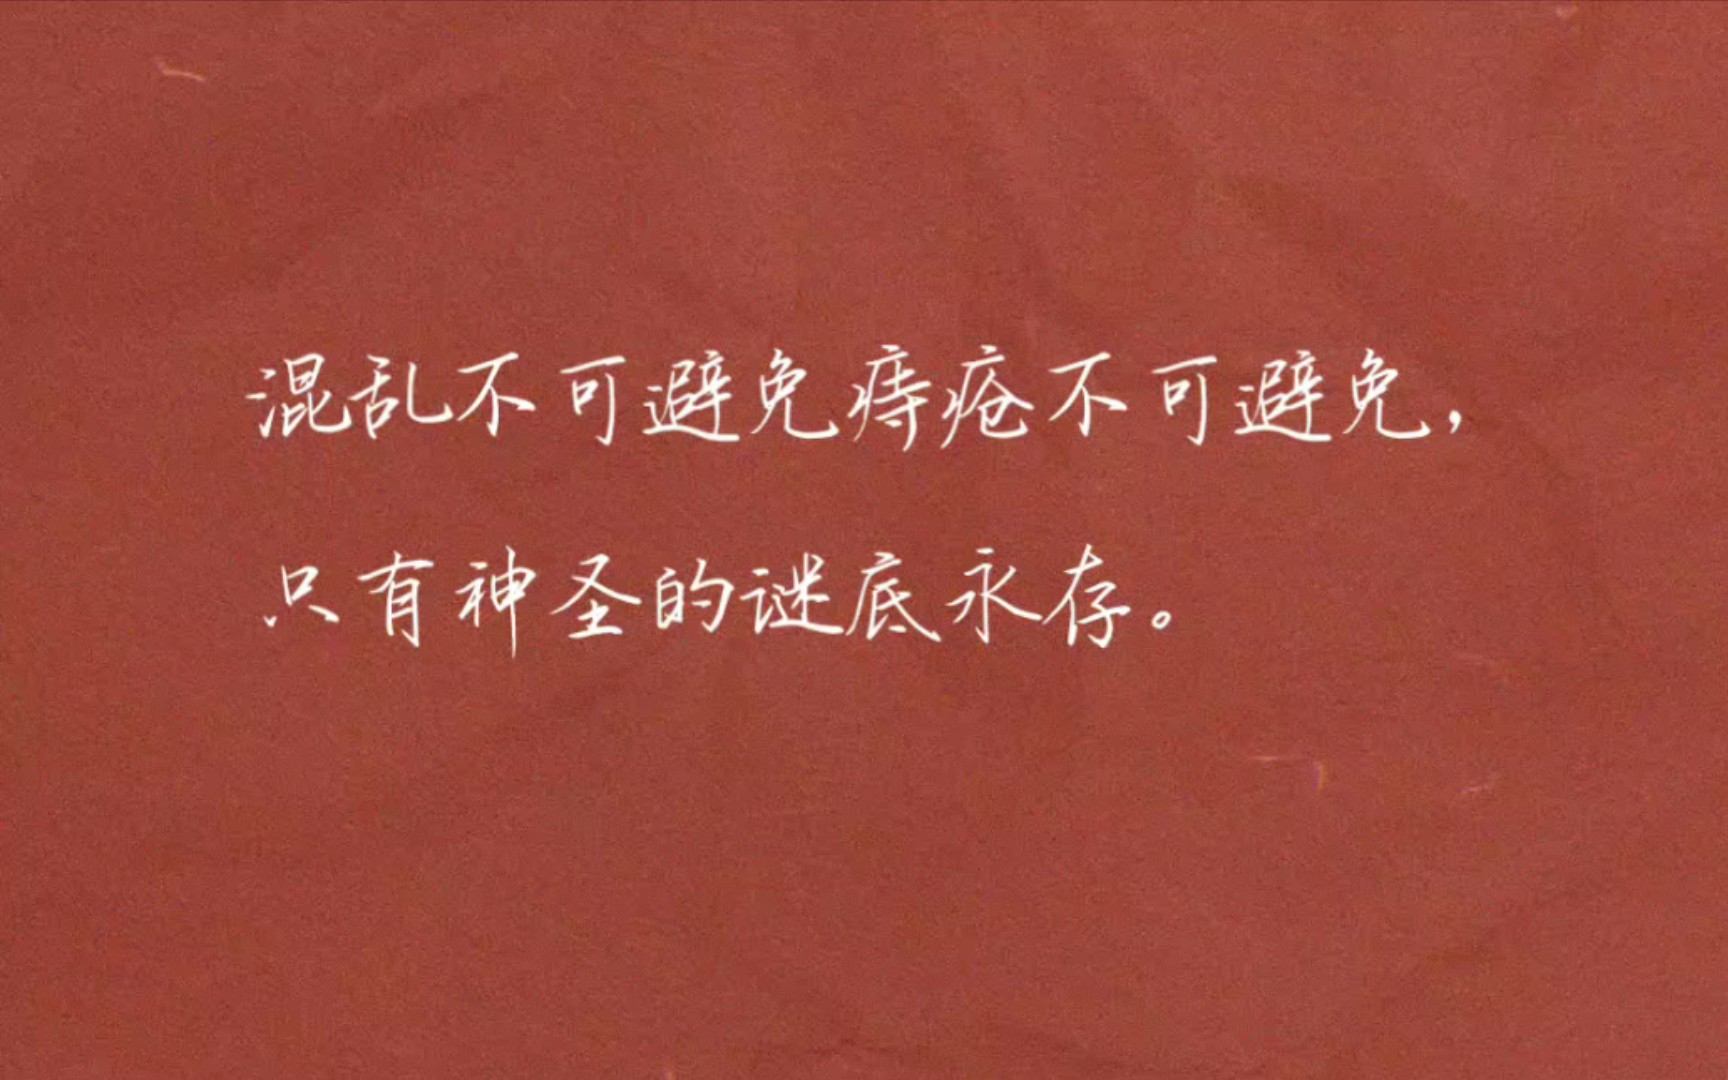 混乱不可避免痔疮不可避免，
只有神圣的谜底永存。